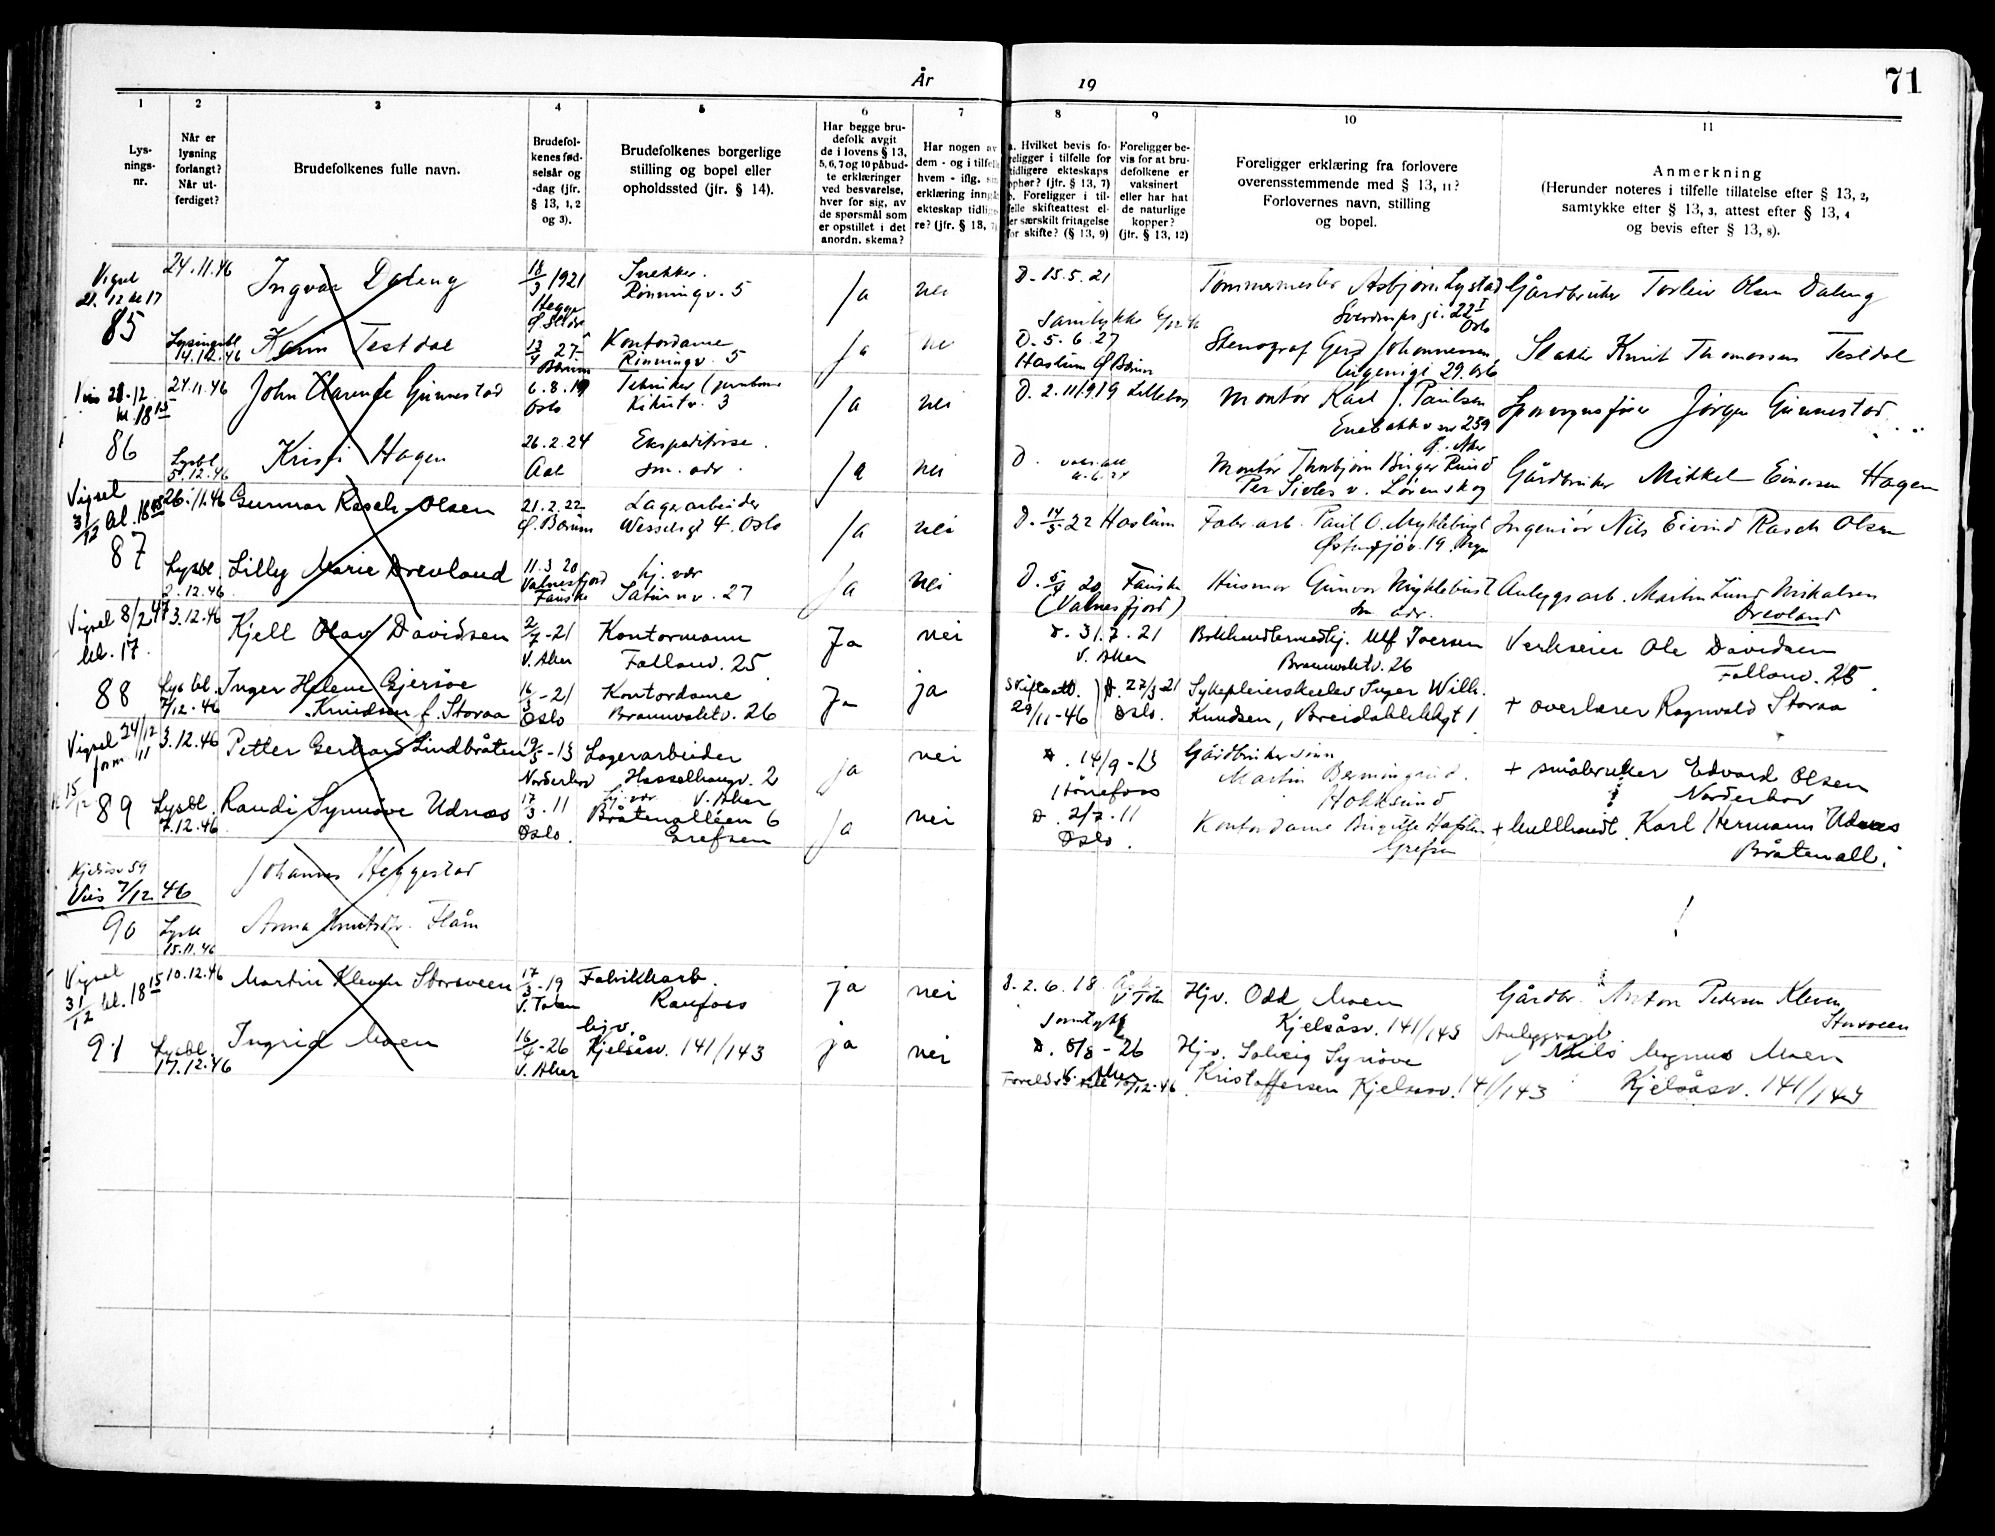 År 19
71
1
Lys-
nings-
nr.
2
Når er
lysning
forlangt?
Når ut-
ferdiget?
3
Brudefolkenes fulle navn.
4
Brudefol-
kenes fød-
selsår og
-dag (jfr.
§ 13, 1, 2
og 3).
5
Brudefolkenes borgerlige
stilling og bopel eller
opholdssted (jfr. § 14).
6
Har begge bru-
defolk avgit
de i lovens § 13,
5, 6, 7 og 10 påbud-
te erklæringer
ved besvarelse,
hver for sig, av
de spørsmål som
er opstillet i det
anordn. skema?
7
Har nogen av
dem - og i tilfelle
hvem - iflg.
erklæring inngå
ekteskap tidlige
re? (jfr. § 13,
8
a. Hvilket bevis fo-
religger i tilfelle for
tidligere ekteskaps
ophør? (jfr. § 13, 7)
b. Foreligger i til-
felle skifteattest el-
ler særskilt fritagelse
for skifte? (§ 13, 9)
9
Foreligger be-
vis for at bru-
defolkene er
vaksinert
eller har hat
de naturlige
kopper?
(jfr. § 13, 12)
10
Foreligger erklæring fra forlovere
overensstemmende med § 13, 11?
Forlovernes navn, stilling
og bopel.
11
Anmerkning
(Herunder noteres i tilfelle tillatelse efter § 13, 2,
samtykke efter § 13, 3, attest efter § 13, 4
og bevis efter § 13, 8).
Vigsel
21.12 kl 17
85
24.11.46
Ingvar Daleng
18/3 1921
Hegge
Ø Slidre
Snekker.
Rønningv. 5
Ja
nei
D. 15.5.21
Tømmermester Asbjørn Lystad
Sverdrups gt. 22 I
Oslo
Gårdbruker Torleiv Olsen Daleng
Lysningsbl
14.12.46
Karin Testdal
13/4 27
Bærum
Kontordame
Rønningv. 5
Ja
nei
Samtykke
D. 5.6.27
Haslum Ø Bærum
Stenograf Gerd Johannessen,
Eugenigt 29. Oslo
Slakter Knut Thomassen Testdal
Vies 21.12.
kl. 18 15
86
24.11.46
John Clarence Gunnestad
6.8.19
Oslo
Tekniker (jernbane
Kikutv. 3
Ja
nei
D. 2.11.1919
Montør Karl J. Paulsen
Enebakkv nr 239
Ø. Aker
Sporvognsfører Jørgen Gunnestad
Lysbl
5.12.46
Kristi Hagen
26.2.24
Aal
Ekspeditrise.
sm. adr.
Ja
nei
D.
Montør Thorbjørn Birger Ruud
Per Sivles v. Lørenskog
Gårdbruker Mikkel Einarsen Hagen
Vigsel
31/12 kl. 18 15
87
26.11.46
Gunnar Rasch-Olsen
21.2.22
Ø. Bærum
Lagerarbeider
Wesselsgt 4. Oslo
Ja
nei
D. 14/5 22 Haslum
Fabr arb. Paul O. Myklebust
Østensjøv. 19. Bryn
Ingeniør Nils Eivind Rasch Olsen
Lysbl.
2.12.46
Lilly Marie Drevland
11.3 20
Valnesfjord
Fauske
hj. vær
Saturnv. 27
Ja
nei
D. 5/4 20 Fauske
(Valnesfjord)
Husmor Gunvor Myklebust
sm adr.
Anleggsarb. Martin Lund Mikalsen
Drevland
Vigsel 8/2 47
kl. 17.
88
3.12.46
Kjell Olav Davidsen
2/7 -21
V. Aker
Kontormann
Fallanv. 25
Ja
nei
D. 31.7.21
V. Aker
Bokhandlermedhj. Ulf Iversen
Bramvoldtv. 26
Verkseier Ole Davidsen
Fallanv. 25
Lysbl.
7/12.46
Inger Helene Gjersøe
Knudsen f. Storaa
16/3 -21
Oslo
Kontordame
Bramvoldtv. 26
Ja
ja
Skifteatt.
29/11-46
D. 27/3-21
Oslo.
Sykepleierskeelev Inger Wilh.
Knudsen, Breidablikkgt 1
+ overlærer Ragnvald Storaa
Vigsel 24/12
form 11
15/12
89
3.12.46
Petter Gerhard Lindbråten
19/5 -13
Norderhov
Lagerarbeider
Hasselhaugv. 2
V. Aker
ja
nei
D. 14/9 -13
Hønefoss
Gårdbrukersønn
Martin Bermingrud.
Hokksund
+ småbruker Edvard Olsen
Norderhov
Lysbl.
7.12.46
Randi Synnøve Udnæs
17/3.11
Oslo.
hj. vær
Bråtenalléen 6
Grefsen
Ja
nei
D. 2/7.11
Oslo.
Kontordame Birgitte Hafslen
Grefsen
+ kullhandl. Karl Hermann Udnæs
Bråtenall.
Kjelsåsv 59
Vies 7/12 46
90
Johannes Heggestad
Lysbl
15.11.46
Anna Knutsdtr. Flåm
!
Vigsel
31/12 kl. 18 15
91
10.12.46
Martin Kleven Storsveen
17/3 -19
V. Toten
Fabrikkarb.
Raufoss
ja
nei
D. 2.6.18
V Toten
Hjv. Odd Moen
Kjelsåsv. 141/143
Gårdbr. Anton Pedersen Kleven
Storsveen
Lysbl.
17.12.46
Ingrid Moen
16/4 -26
V. Aker
hjv.
Kjelsåsv. 141/143
ja
nei
Samtykk
D. 8/8 -26
V. Aker
Hjv. Solveig Synøve
Kristoffersen Kjelsåsv. 141/143
Anleggsarb.
Nils Magnus Moen
Kjelsåsv. 141/143